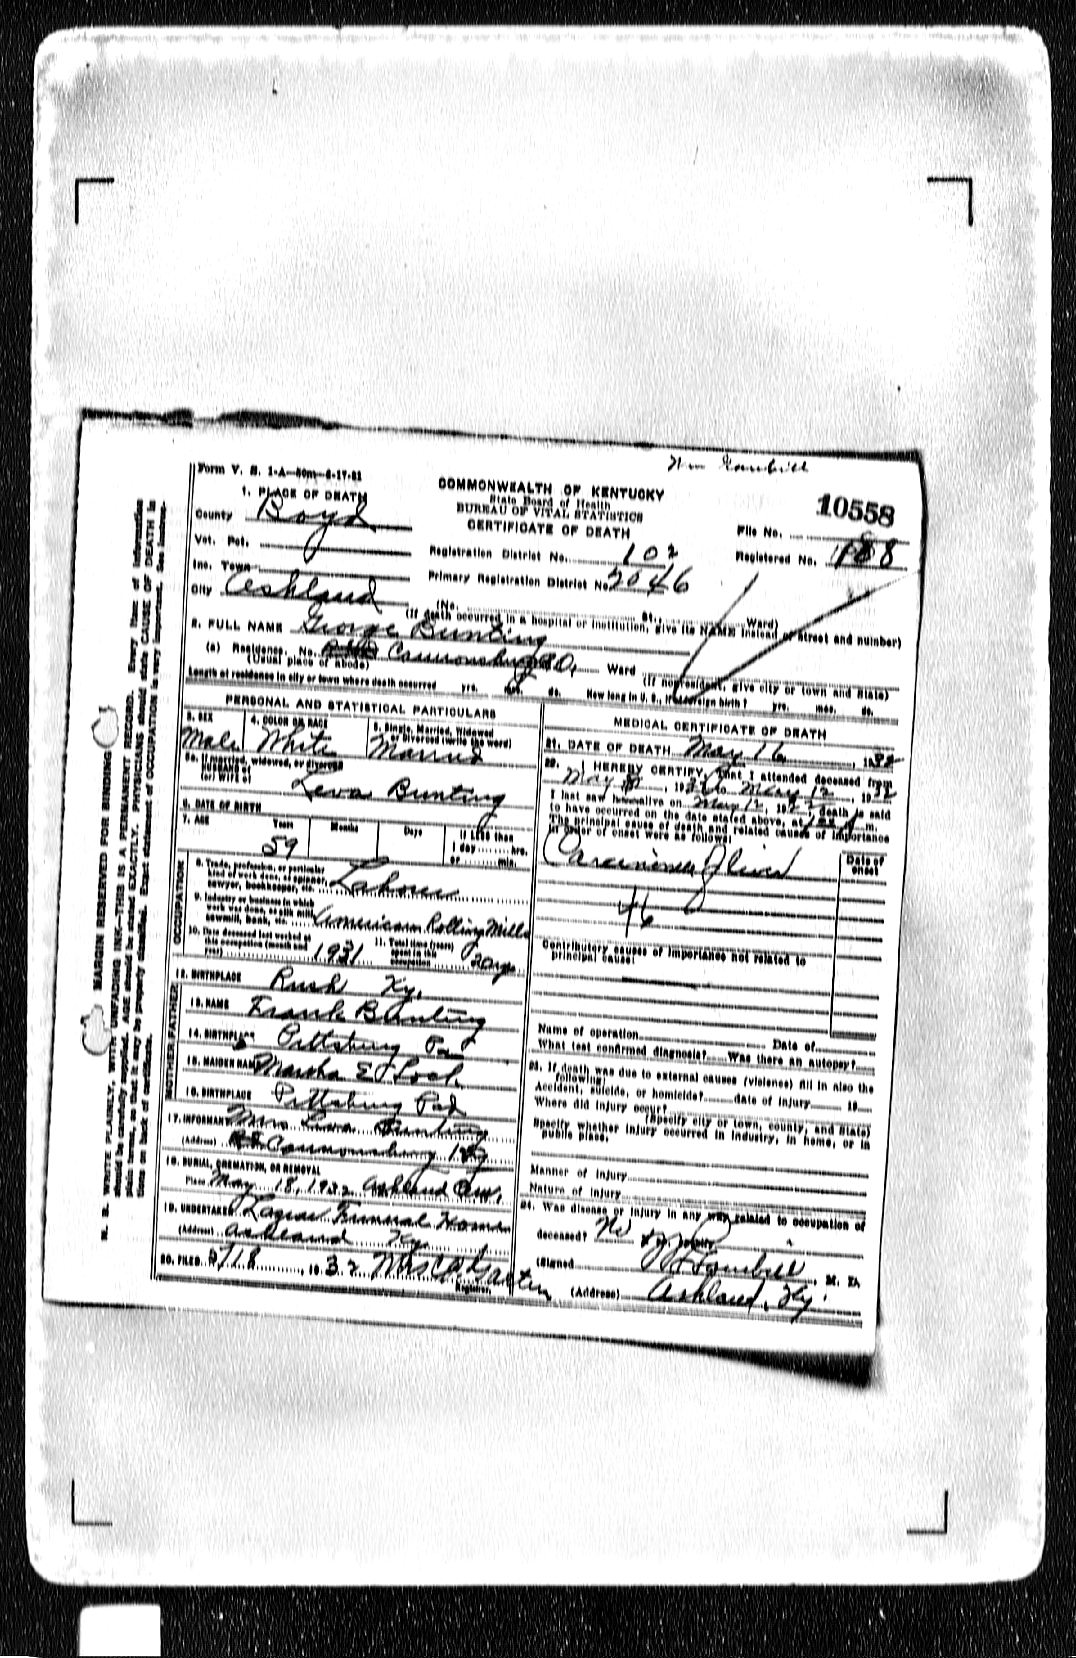 Wm Gambill
Form V. S. 1-A—50m—6-17-31
COMMONWEALTH OF KENTUCKY
State Board of Health
BUREAU OF VITAL STATISTICS
CERTIFICATE OF DEATH
10558
File No.
Registered No. 188
1. PLACE OF DEATH
County Boyd
Vot. Pct.
Inc. Town
City Ashland
Registration District No. 102
Primary Registration District No. 2046
(No. St., Ward)
(If death occurred in a hospital or institution, give its NAME instead of street and number)
2. FULL NAME George Bunting
(a) Residence. No. Cannonsburg Ward
(Usual place of abode) (If nonresident, give city or town and State)
Length of residence in city or town where death occurred yrs. mos. ds. How long in U. S., if of foreign birth? yrs. mos. ds.
PERSONAL AND STATISTICAL PARTICULARS
3. SEX Male
4. COLOR OR RACE White
5. Single, Married, Widowed or Divorced (write the word) Married
5a. If married, widowed, or divorced
HUSBAND of
(or) WIFE of Leva Bunting
6. DATE OF BIRTH
7. AGE Years 59 Months Days If LESS than 1 day hrs. or min.
OCCUPATION
8. Trade, profession, or particular kind of work done, as spinner, sawyer, bookkeeper, etc. Laborer
9. Industry or business in which work was done, as silk mill, sawmill, bank, etc. American Rolling Mills
10. Date deceased last worked at this occupation (month and year) 1931
11. Total time (years) spent in this occupation 20 yrs
12. BIRTHPLACE Rush Ky.
FATHER
13. NAME Frank Bunting
14. BIRTHPLACE Pittsburg Pa
MOTHER
15. MAIDEN NAME Marsha E
16. BIRTHPLACE Pittsburg
17. INFORMANT Mrs Leva Bunting
(Address) Cannonsburg Ky
18. BURIAL, CREMATION, OR REMOVAL
Place May 18, 1932 Ashland Cem.
19. UNDERTAKER Funeral Home
(Address) Ashland Ky.
20. FILED 5/18, 1932 Mrs
Registrar.
MEDICAL CERTIFICATE OF DEATH
21. DATE OF DEATH May 16, 1932
22. I HEREBY CERTIFY, That I attended deceased from
May, 1932 to May 12, 1932
I last saw him alive on May 12, 1932 death is said
to have occurred on the date stated above, at m.
The principal cause of death and related causes of importance
in order of onset were as follows:
Date of onset
Carcinoma of liver
46
Contributory causes of importance not related to
principal cause:
Name of operation Date of
What test confirmed diagnosis? Was there an autopsy?
23. If death was due to external causes (violence) fill in also the
following:
Accident, suicide, or homicide? date of injury 19
Where did injury occur?
(Specify city or town, county, and State)
Specify whether injury occurred in industry, in home, or in
public place.
Manner of injury
Nature of injury
24. Was disease or injury in any way related to occupation of
deceased? No If so, specify
(Signed Gambill, M. D.
(Address) Ashland, Ky.
MARGIN RESERVED FOR BINDING
N. B. WRITE PLAINLY, WITH UNFADING INK—THIS IS A PERMANENT RECORD. Every item of information
should be carefully supplied. AGE should be stated EXACTLY. PHYSICIANS should state CAUSE OF DEATH in
plain terms, so that it may be properly classified. Exact statement of OCCUPATION is very important. See instruc-
tions on back of certificate.